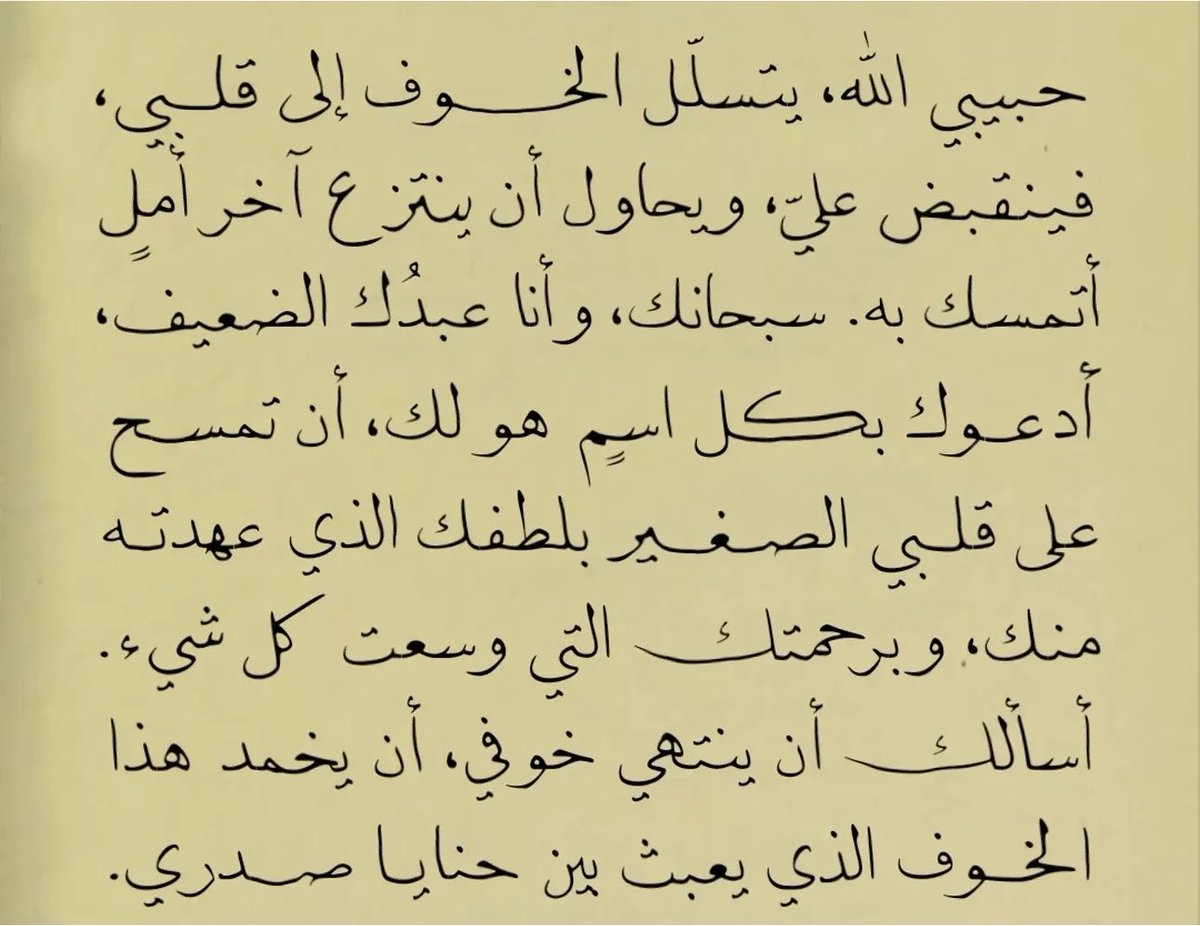 حبيبي الله، يتسلّل الخوف إلى قلبي،
فينقبض عليّ، ويحاول أن ينتزع آخر أملٍ
أتمسك به. سبحانك، وأنا عبدُك الضعيف،
أدعوك بكل اسمٍ هو لك، أن تمسح
على قلبي الصغير بلطفك الذي عهدته
منك، وبرحمتك التي وسعت كل شيء.
أسألك أن ينتهي خوفي، أن يخمد هذا
الخوف الذي يعبث بين حنايا صدري.